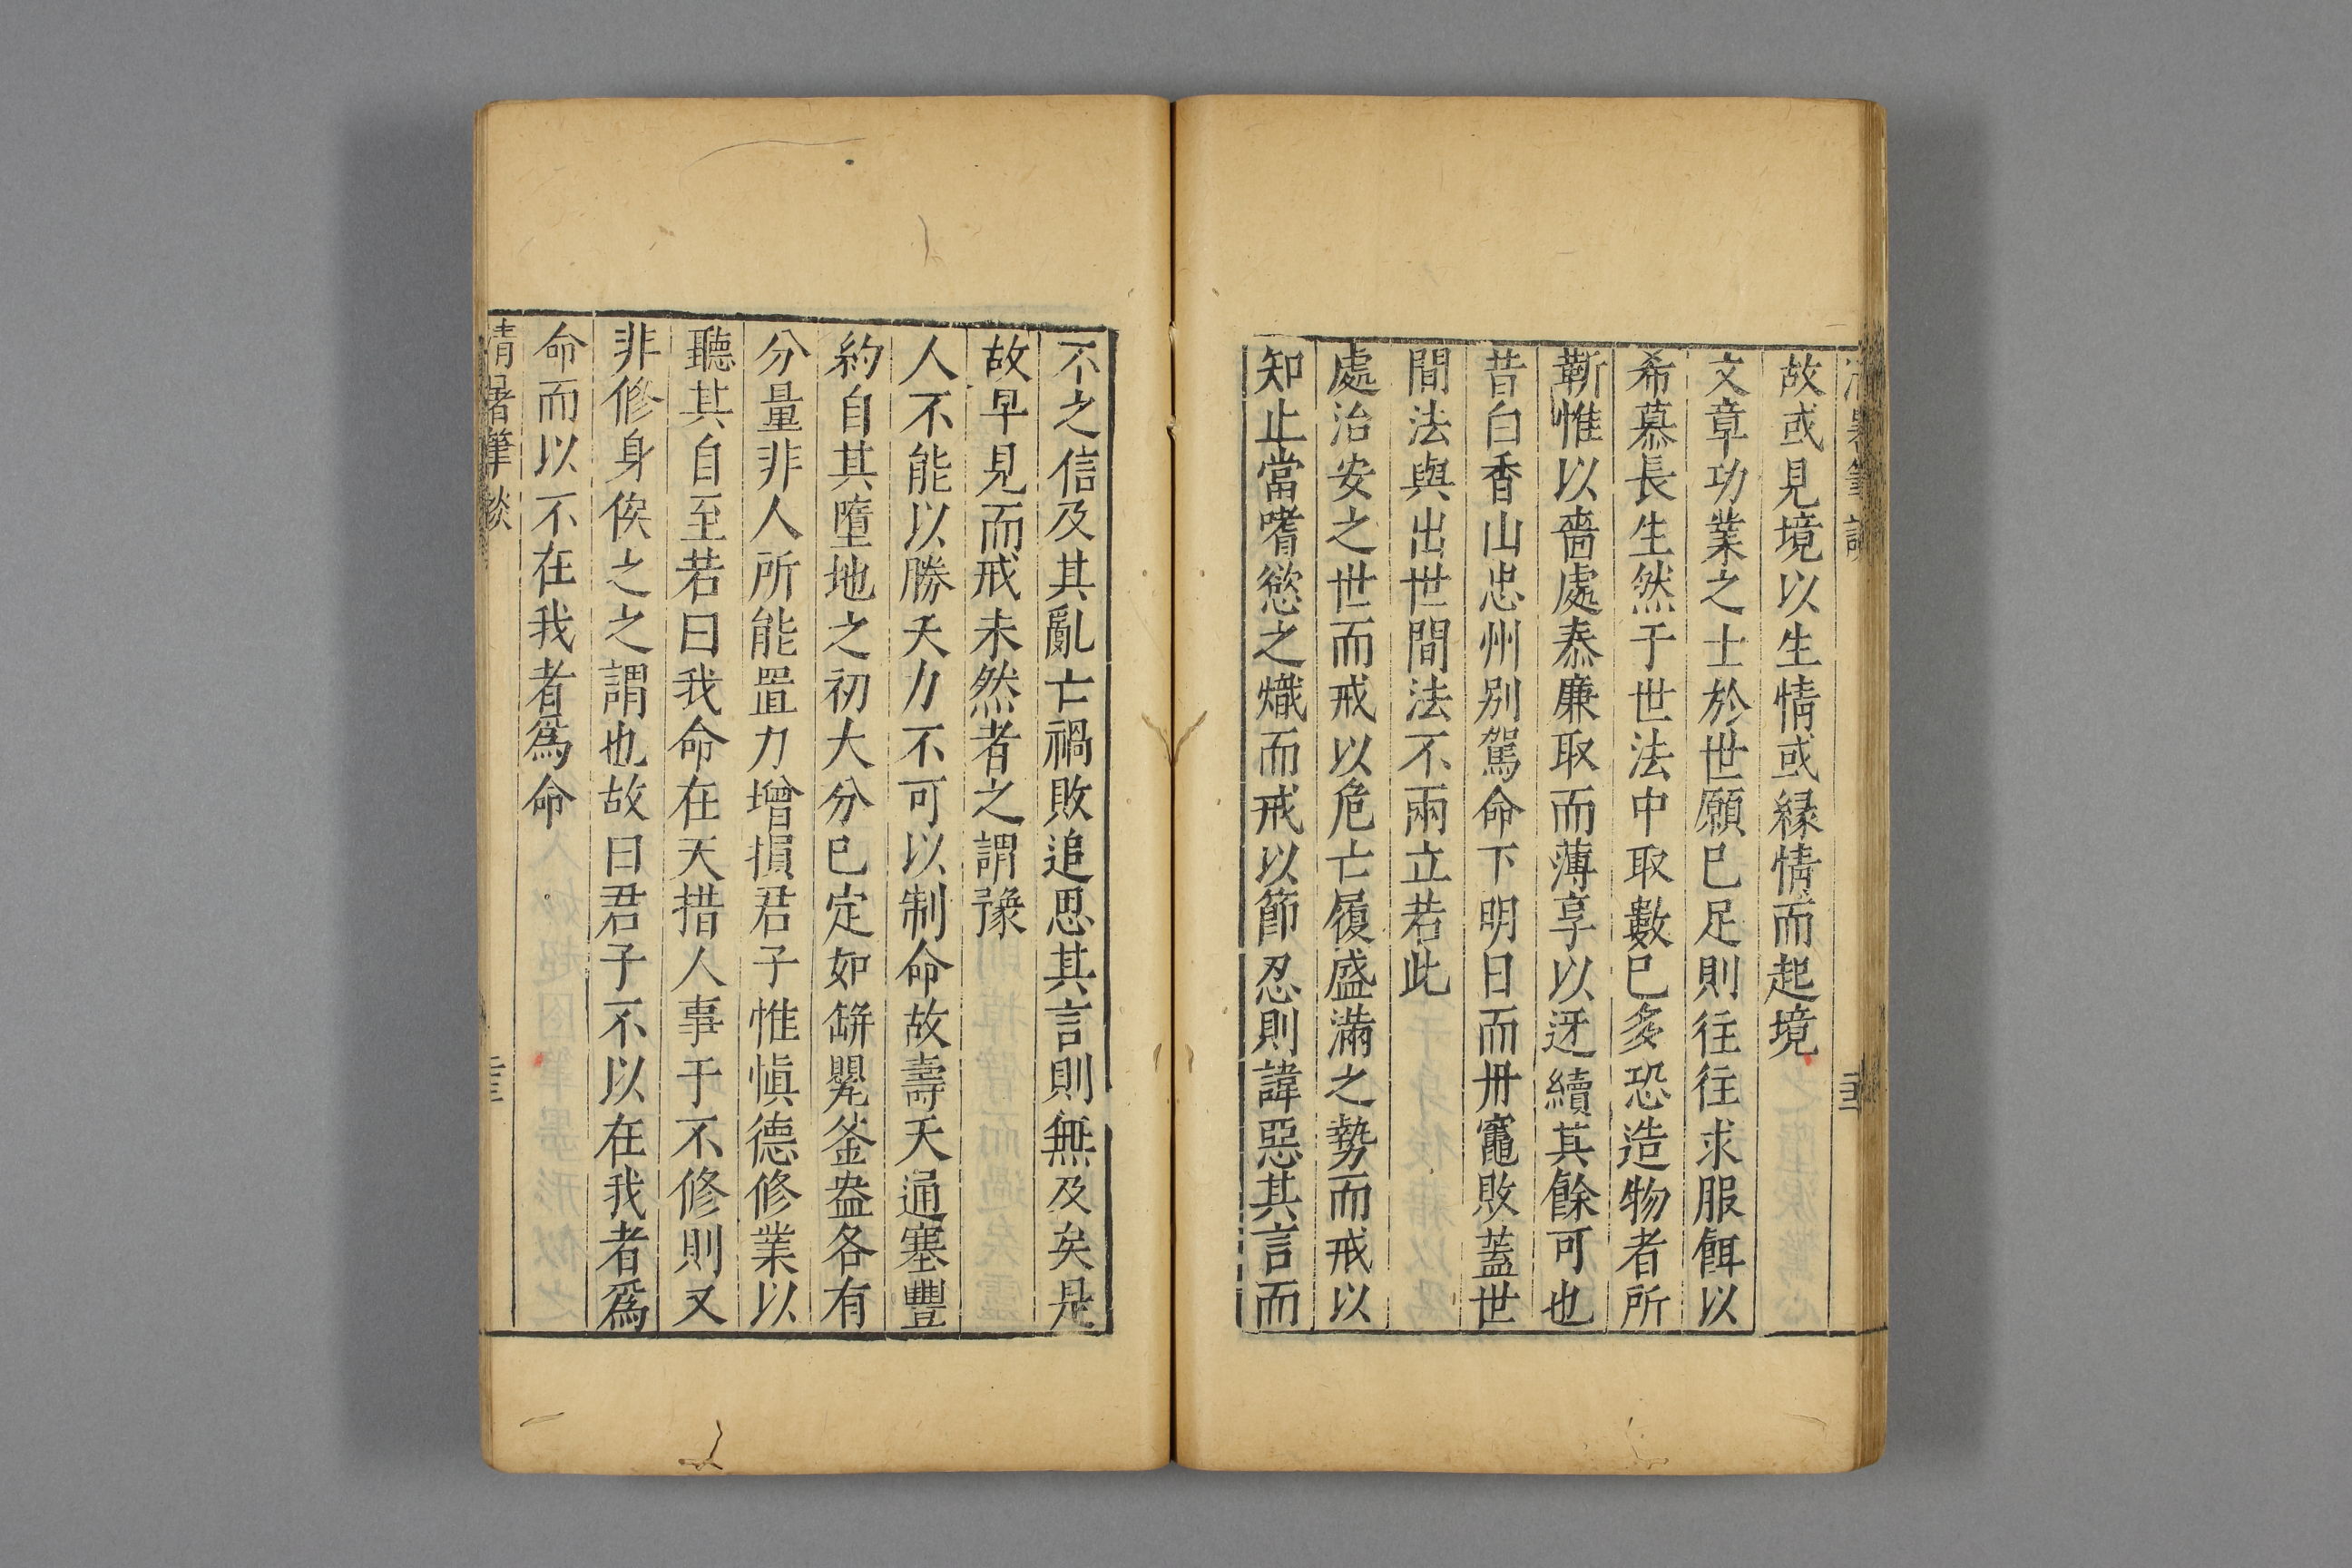 故或見境以生情或緣情而起境
文章功業之士於世願已足則往往求服餌以
希慕長生然于世法中取數已多恐造物者所
靳惟以嗇處泰廉取而薄享以迓續其餘可也
昔白香山忠州別駕命下明日而丹竈敗蓋世
間法與出世間法不兩立若此
處治安之世而戒以危亡履盛滿之勢而戒以
知止當嗜慾之熾而戒以節忍則諱惡其言而
不之信及其亂亡禍敗追思其言則無及矣是
故早見而戒未然者之謂豫
人不能以勝天力不可以制命故壽夭通塞豐
約自其墮地之初大分已定如缾甖釜盎各有
分量非人所能置力增損君子惟慎德修業以
聽其自至若曰我命在天措人事于不修則又
非修身俟之之謂也故曰君子不以在我者爲
命而以不在我者爲命
清暑筆談